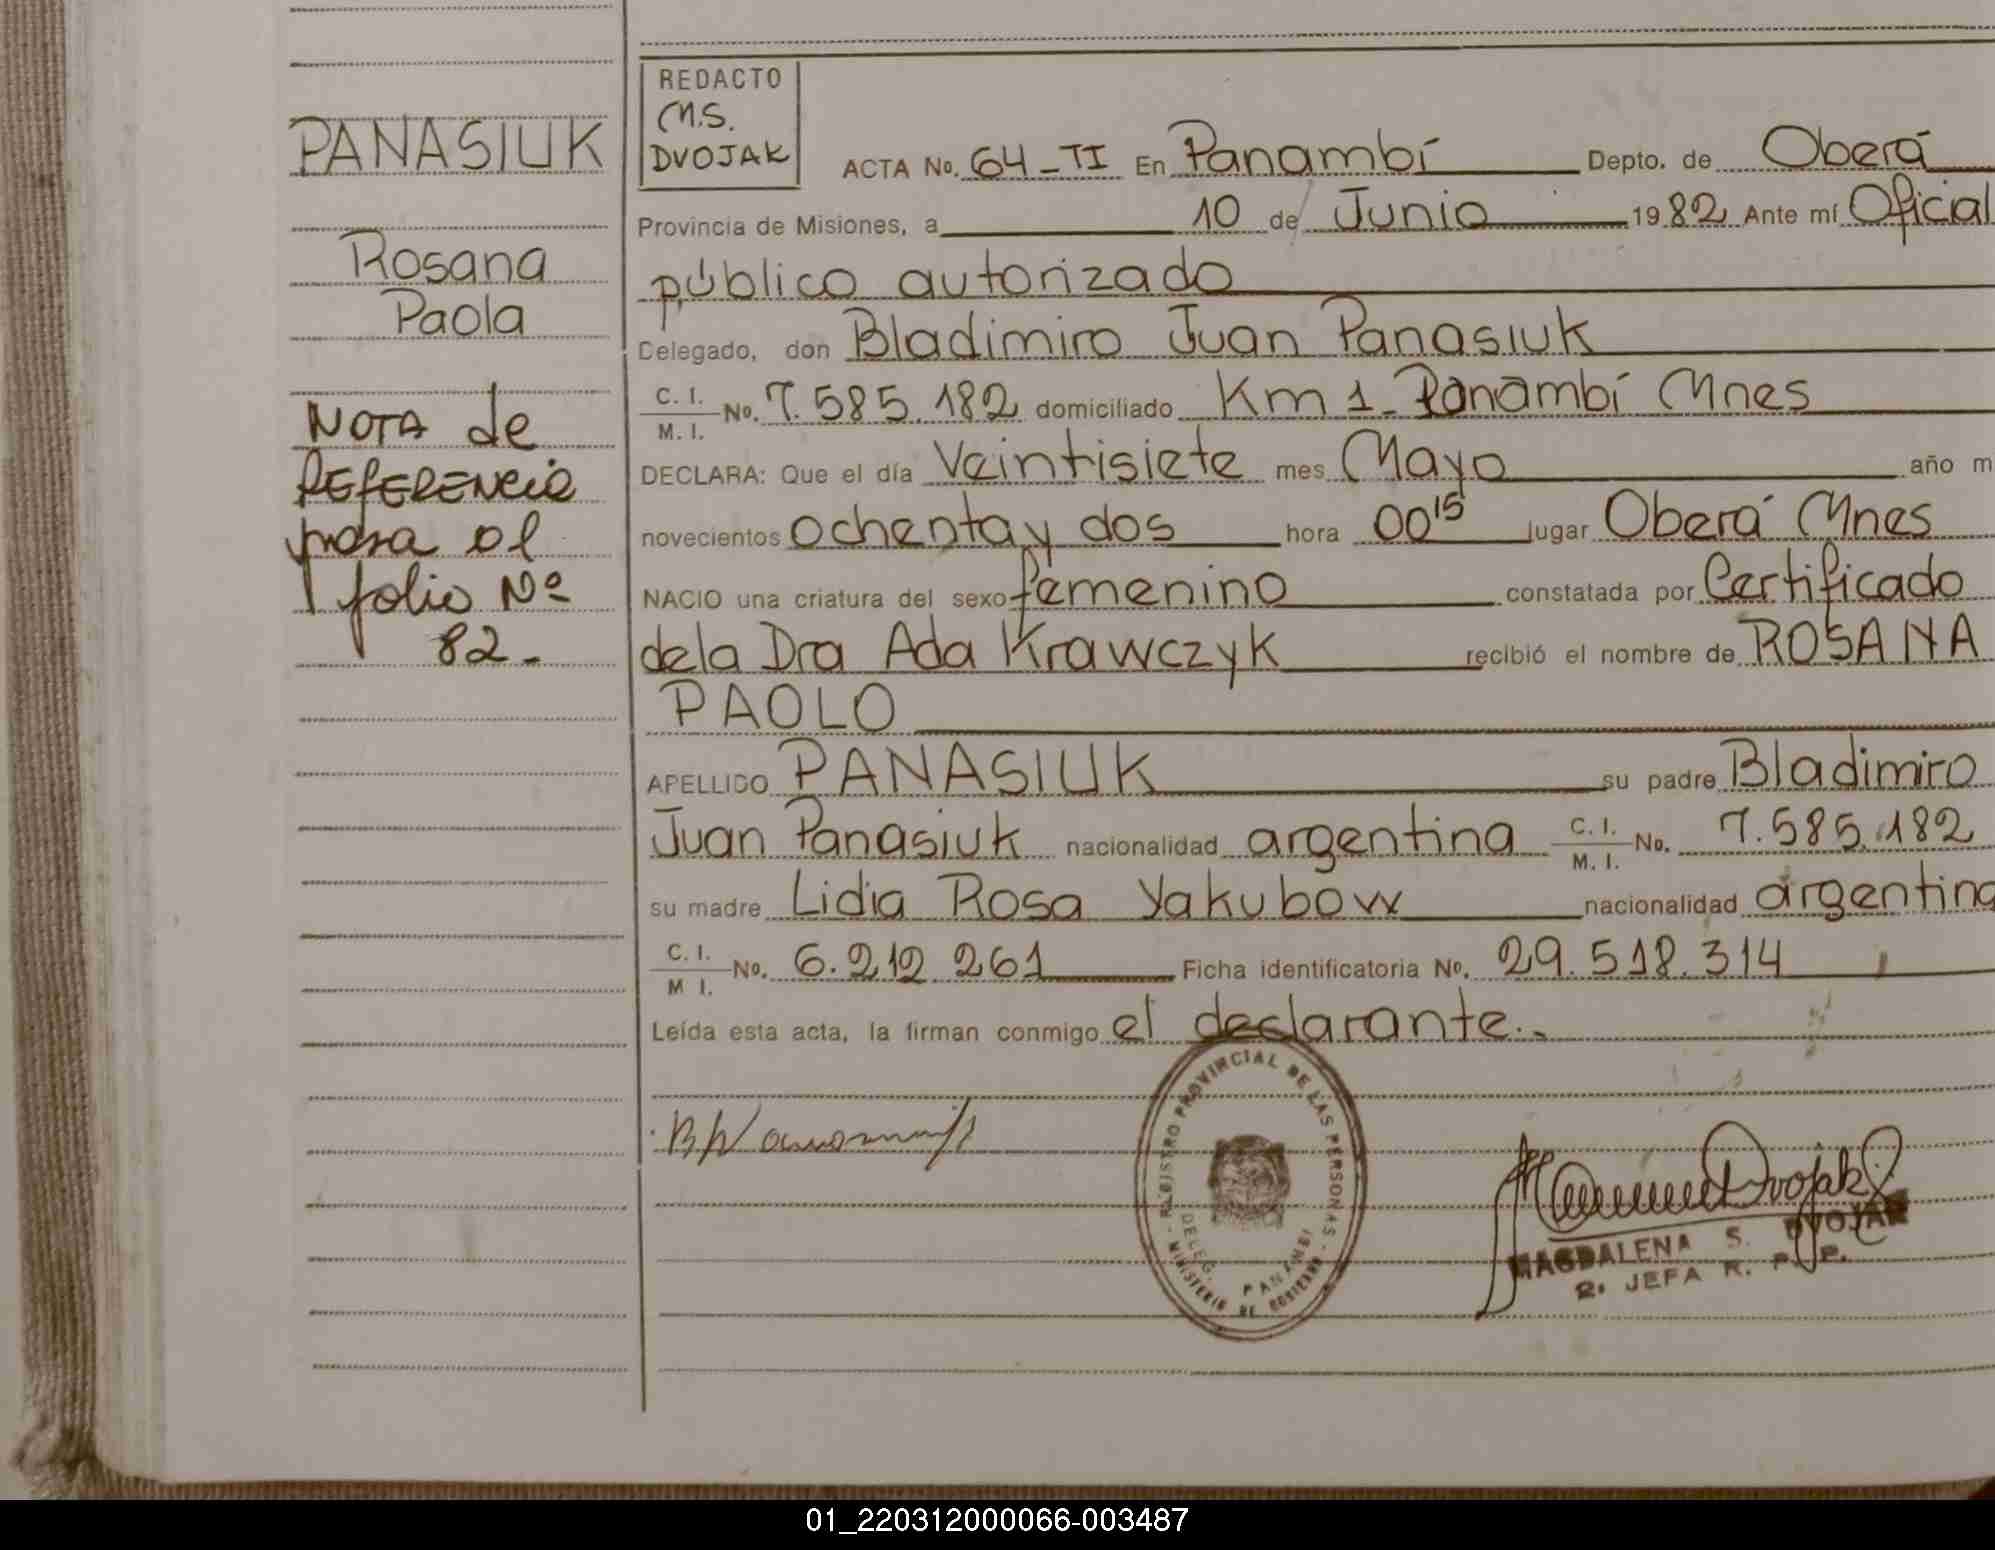 PANASIUK
Rosana
Paola
NOTA de
REFERENCIA
pasa al
folio Nº
82.-
REDACTO
M.S.
DVOJAK
ACTA No. 64-TI En Panambí Depto. de Oberá
Provincia de Misiones, a 10 de Junio 1982 Ante mí Oficial
público autorizado
Delegado, don Bladimiro Juan Panasiuk
C. I.
M. I. No. 7.585.182 domiciliado Km 1-Panambí Mnes
DECLARA: Que el día Veintisiete mes Mayo año m
novecientos ochenta y dos hora 00 15 lugar Oberá Mnes
NACIO una criatura del sexo femenino constatada por Certificado
de la Dra Ada Krawczyk recibió el nombre de ROSANA
PAOLO
APELLIDO PANASIUK su padre Bladimiro
Juan Panasiuk nacionalidad argentina C. I.
M. I. No. 7.585.182
su madre Lidia Rosa Yakubow nacionalidad argentina
C. I.
M I. No. 6.212.261 Ficha identificatoria No. 29.518.314
Leída esta acta, la firman conmigo el declarante.-
REGISTRO PROVINCIAL DE LAS PERSONAS
DELEG. PANAMBI
MINISTERIO DE GOBIERNO
Dvojak
MAGDALENA S. DVOJAK
2. JEFA R. P. P.
01_220312000066-003487